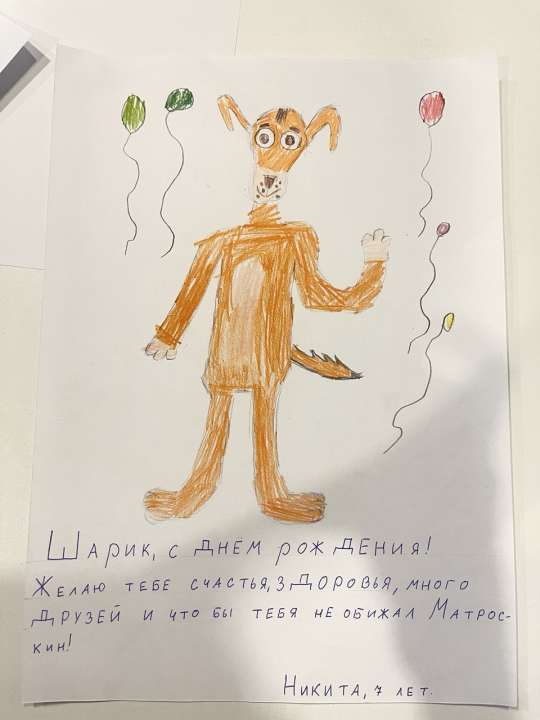 Шарик, с днем рождения!
Желаю тебе счастья, здоровья, много
друзей и что бы тебя не обижал Матрос-
кин!
Никита, 7 лет.